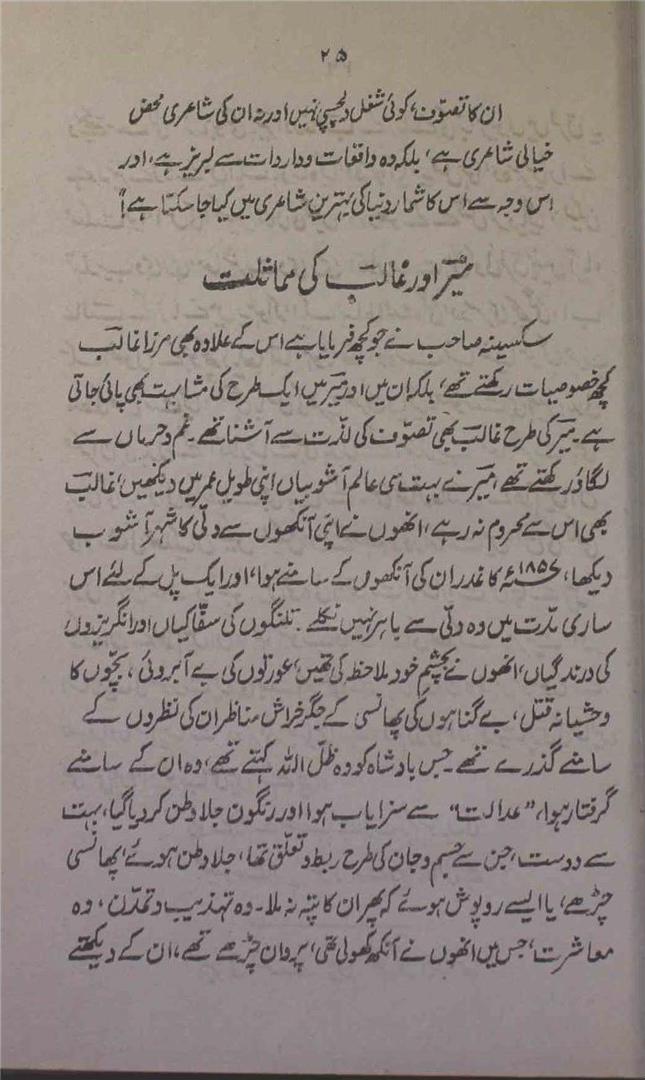 ۲۵
ان کا تصوّف، کوئی شغل دلچسپی نہیں اور نہ ان کی شاعری محض
خیالی شاعری ہے، بلکہ وہ واقعات و واردات سے لبریز ہے، اور
اس وجہ سے اس کا شمار دنیا کی بہترین شاعری میں کیا جا سکتا ہے!"
میرؔ اور غالبؔ کی مماثلت
سکسینہ صاحب نے جو کچھ فرمایا ہے اس کے علاوہ بھی مرزا غالبؔ
کچھ خصوصیات رکھتے تھے، بلکہ ان میں اور میرؔ میں ایک طرح کی مشابہت بھی پائی جاتی
ہے۔ میرؔ کی طرح غالبؔ بھی تصوّف کی لذّت سے آشنا تھے۔ غم و حرماں سے
لگاؤ رکھتے تھے، میرؔ نے بہت سی عالم آشوبیاں اپنی طویل عمر میں دیکھیں، غالبؔ
بھی اس سے محروم نہ رہے، انھوں نے اپنی آنکھوں سے دلّی کا شہر آشوب
دیکھا، ۱۸۵۷ء کا غدر ان کی آنکھوں کے سامنے ہوا، اور ایک پل کے لئے اس
ساری مدّت میں وہ دلّی سے باہر نہیں نکلے۔ تلنگوں کی سفّاکیاں اور انگریزوں
کی درندگیاں، انھوں نے بچشمِ خود ملاحظہ کی تھیں، عورتوں کی بے آبروئی، بچّوں کا
وحشیانہ قتل، بے گناہوں کی پھانسی کے جگر خراش مناظر ان کی نظروں کے
سامنے گذرے تھے۔ جس بادشاہ کو وہ ظلّ اللہ کہتے تھے، وہ ان کے سامنے
گرفتار ہوا، "عدالت" سے سزایاب ہوا اور رنگون جلا وطن کر دیا گیا، بہت
سے دوست، جن سے جسم و جان کی طرح ربط و تعلّق تھا، جلا وطن ہوئے، پھانسی
چڑھے، یا ایسے روپوش ہوئے کہ پھر ان کا پتہ نہ ملا۔ وہ تہذیب و تمدّن، وہ
معاشرت، جس میں انھوں نے آنکھ کھولی تھی، پروان چڑھے تھے، ان کے دیکھتے